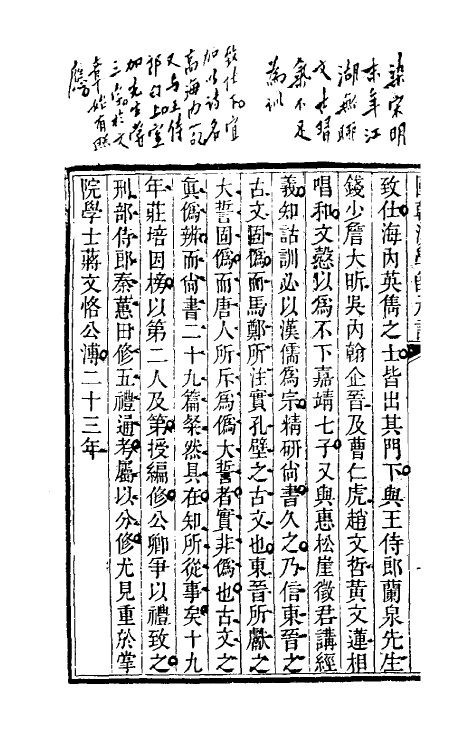 致仕海內英儁之士皆出其門下與王侍郎蘭泉先生
錢少詹大昕吳內翰企晉及曹仁虎趙文哲黃文蓮相
唱和文慤以爲不下嘉靖七子又與惠松崖徵君講經
義知詁訓必以漢儒爲宗精研尙書久之乃信東晉之
古文固僞而馬鄭所注實孔壁之古文也東晉所獻之
大誓固僞而唐人所斥爲僞大誓者實非僞也古文之
眞僞辨而尙書二十九篇粲然具在知所從事矣十九
年莊培因榜以第二人及第授編修公卿爭以禮致之
刑部侍郎秦蕙田修五禮通考屬以分修尤見重於掌
院學士蔣文恪公溥二十三年
染宋明
末年江
湖
氣不足
爲訓
致仕
加以詩名
高海內
又與王侍